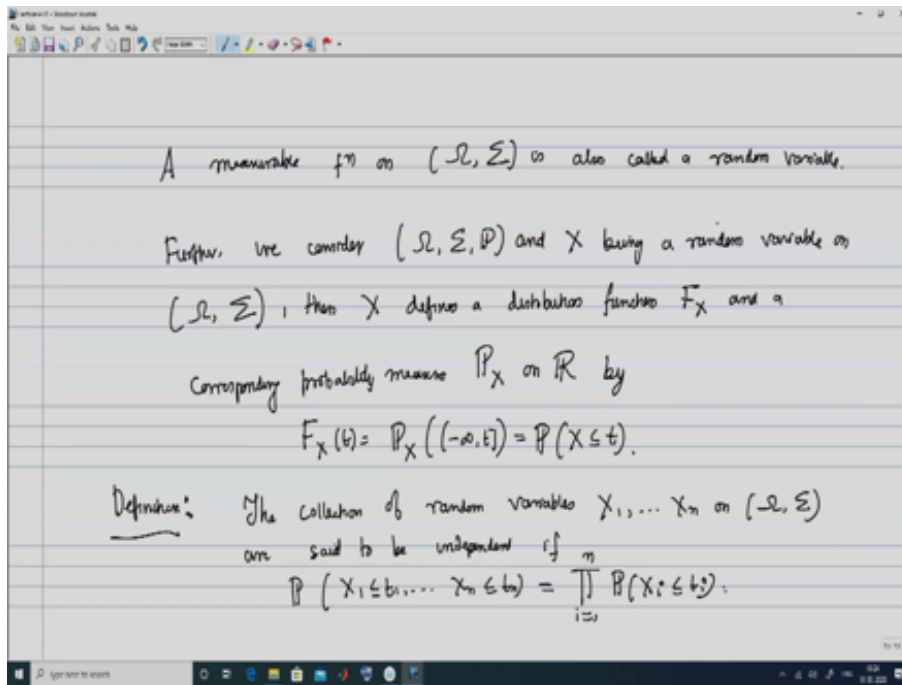 File Edit View Insert Actions Tools Help
A measurable fⁿ on (Ω, Σ) is also called a random variable.
Further, we consider (Ω, Σ, ℙ) and X being a random variable on
(Ω, Σ), then X defines a distribution function F_X and a
Corresponding probability measure ℙ_X on ℝ by
F_X(t) = ℙ_X((-∞, t]) = ℙ(X ≤ t).
Definition: The collection of random variables X₁, ... Xₙ on (Ω, Σ)
are said to be independent if
ℙ(X₁ ≤ t₁, ... Xₙ ≤ tₙ) = ∏ⁿᵢ₌₁ ℙ(Xᵢ ≤ tᵢ).
Type here to search